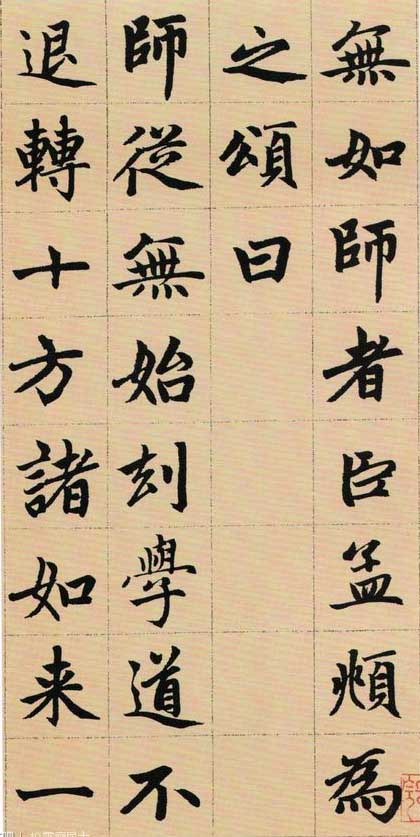 無如師者臣孟頫為
之頌曰
師從無始刦學道不
退轉十方諸如来一